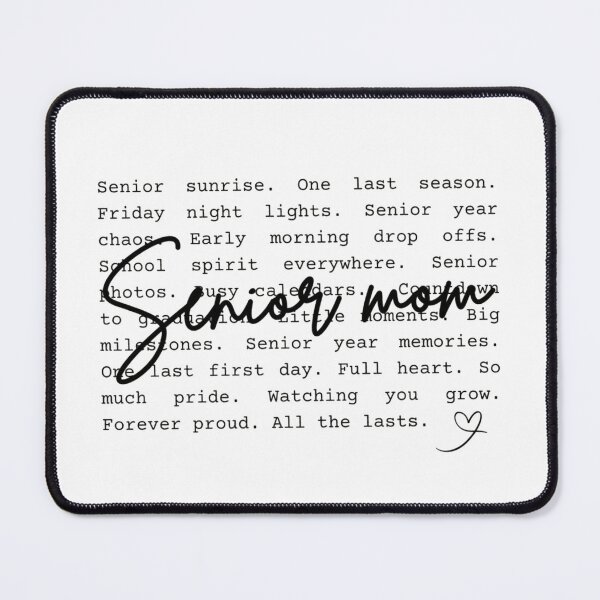 Senior sunrise. One last season.
Friday night lights. Senior year
chaos. Early morning drop offs.
School spirit everywhere. Senior
photos. Busy calendars. Countdown
to graduation. Little moments. Big
milestones. Senior year memories.
One last first day. Full heart. So
much pride. Watching you grow.
Forever proud. All the lasts.
Senior mom